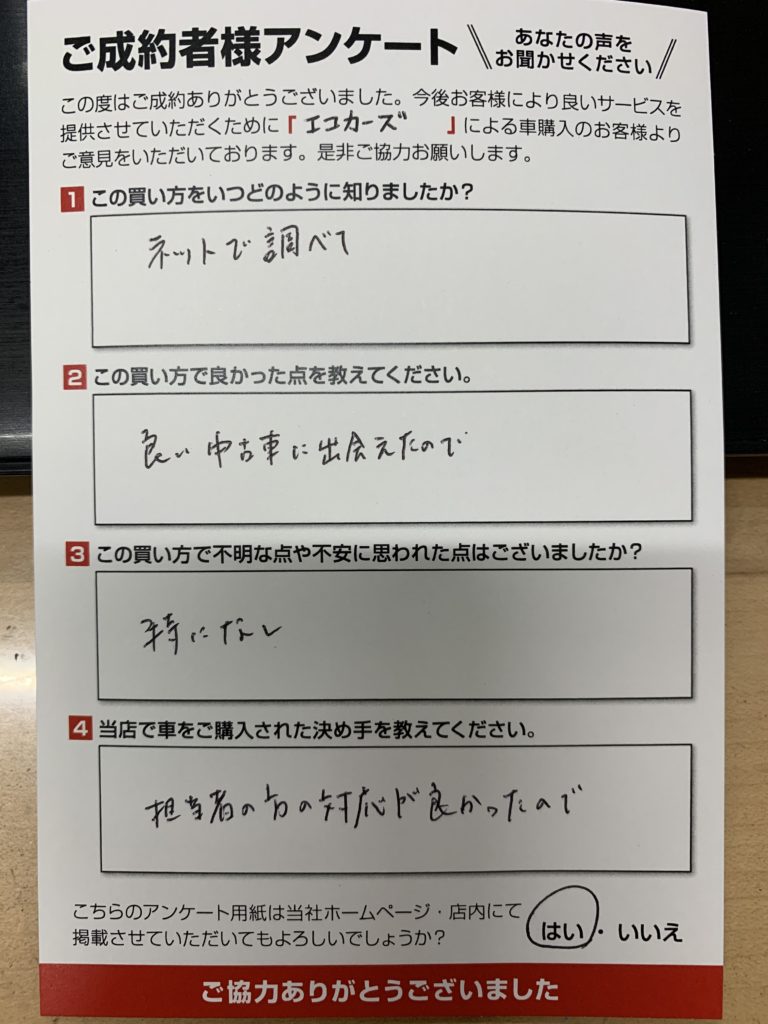 ご成約者様アンケート
あなたの声を
お聞かせください
この度はご成約ありがとうございました。今後お客様により良いサービスを
提供させていただくために「エコカーズ」による車購入のお客様より
ご意見をいただいております。是非ご協力お願いします。
1 この買い方をいつどのように知りましたか？
ネットで調べて
2 この買い方で良かった点を教えてください。
良い中古車に出会えたので
3 この買い方で不明な点や不安に思われた点はございましたか？
特になし
4 当店で車をご購入された決め手を教えてください。
担当者の方の対応が良かったので
こちらのアンケート用紙は当社ホームページ・店内にて
掲載させていただいてもよろしいでしょうか？
はい・いいえ
ご協力ありがとうございました